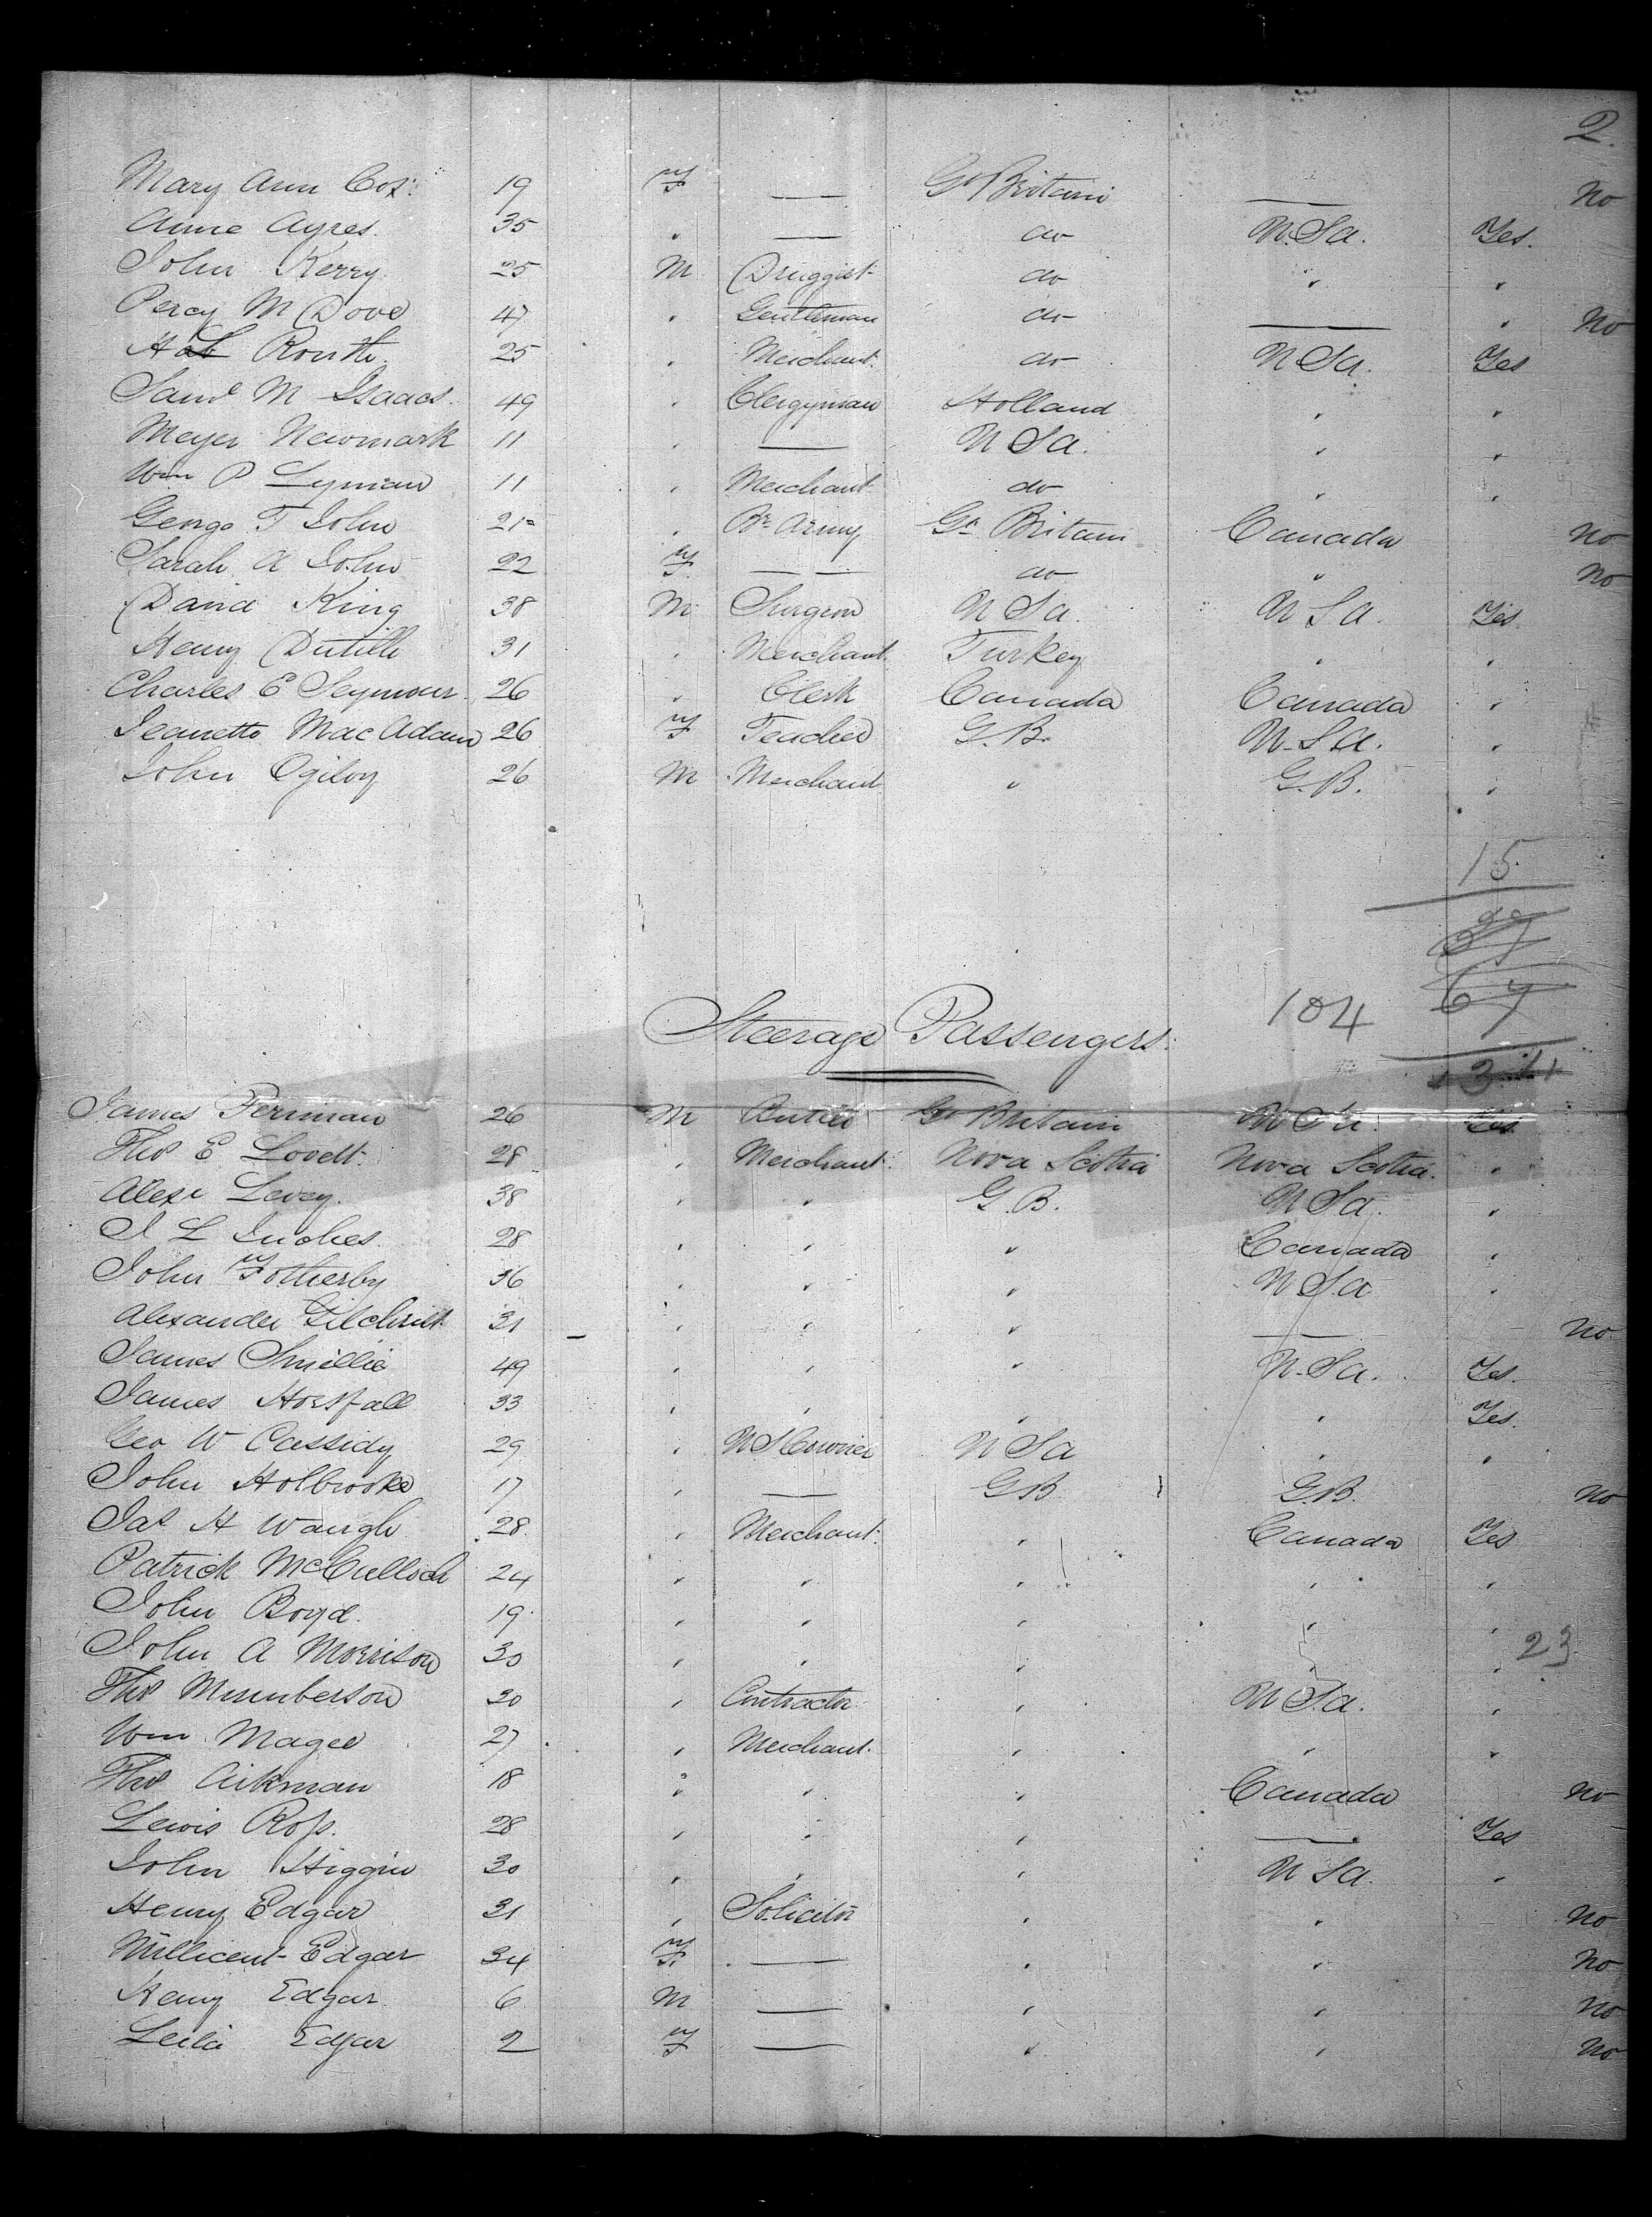 2.
Mary Ann Cox 19 F — Gt Britain — No
Anne Ayres. 35 " — do U.S.A. Yes.
John Kerry. 25 M Druggist do " "
Percy M Dove 47 " Gentleman do — " No
Routh. 25 " Merchant do U S A. Yes
Saml M Isaacs. 49 " Clergyman Holland " "
Meyer Newmark 11 " — U S A. " "
Wm P Lyman 11 " Merchant do " "
George T John 21 " Br Army Gt Britain Canada No
Sarah A John 22 F. — do " No
David King 38 M Surgeon U S A. U S A. Yes.
Henry Dutilh 31 " Merchant Turkey " "
Charles E Seymour. 26 " Clerk Canada Canada "
Jeanette MacAdam 26 F Teacher G.B. U.S.A. "
John Ogilvy 26 M Merchant " G.B. "
15
67
104
Steerage Passengers.
James Perriman 26 M Gt Britain U S A. Yes
Thos E Lovett. 28 " Merchant Nova Scotia Nova Scotia. "
Alexr Levey. 38 " " G.B. U S A. "
J L Inches. 28 " " " Canada "
John Fotherby 36 " " " U S A "
Alexander Gilchrist 31 " " " — No
James Smillie 49 " " " U.S.A. Yes.
James Horsfall 33 " " " " Yes.
Geo W Cassidy 29 " U S Courier U S A " "
John Holbrooke 17 " — G B G.B. No
Jas H Waugh 28. " Merchant " Canada Yes
Patrick McCulloch 24 " " " " "
John Boyd. 19. " " " " "
John A Morrison 30 " " " " " 23
Thos 30 " Contractor " U S A. "
Wm Magee 27 " Merchant. " " "
Thos Aikman 18 " " " Canada No
Lewis Ross. 28 " " " — Yes
John Higgin 30 " " " U S A. "
Henry Edgar 31 " Solicitor " " No
Millicent Edgar 34 F. — " " No
Henry Edgar 6 M — " " No
Leila Edgar 2 F — " " No